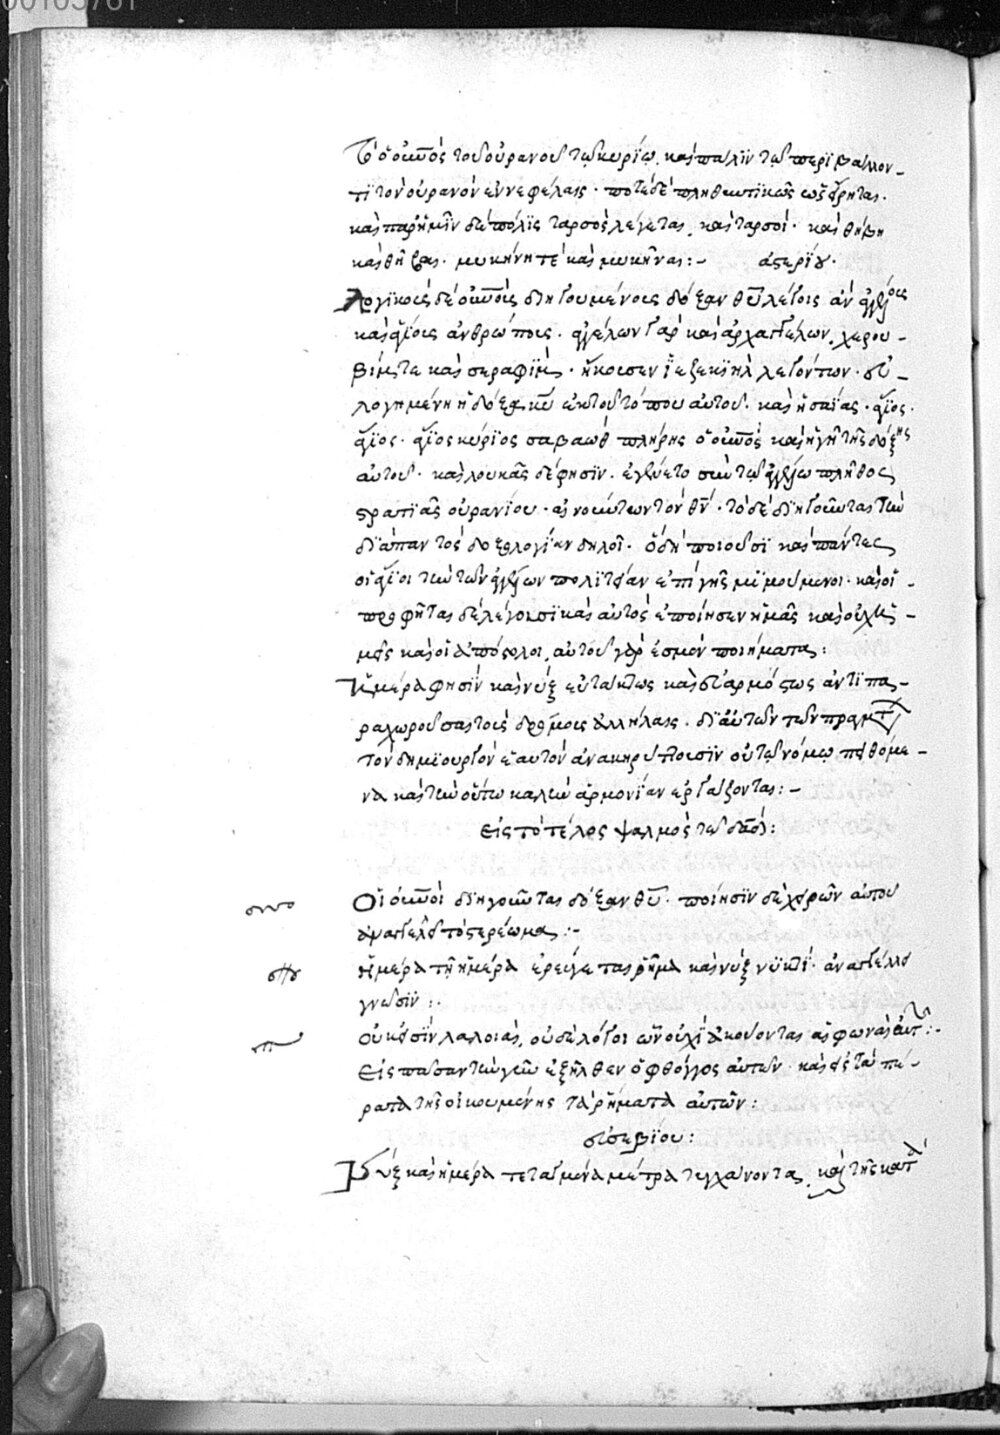 00103761
Τὸ ὁ οὐνος τοῦ οὐρανοῦ τῷ κυρίῳ. καὶ πάλιν τῷ περιβάλλον-
τι τὸν οὐρανὸν ἐν νεφέλαις· ποτὲ δὲ πληθυντικῶς ὡς εἴρηται.
καὶ παρ' ἡμῖν δὲ πόλις ταρσὸς λέγεται, καὶ ταρσοί· καὶ θήβη
καὶ θῆβαι. μυκήνη τὲ καὶ μυκῆναι:- ἀστερίου·
Λογικοὺς δὲ οὐνοὺς διηγουμένους δόξαν θυ λέγοις ἂν ἀγγέλους
καὶ ἁγίους ἀνθρώπους. ἀγγέλων γὰρ καὶ ἀρχαγγέλων, χερου-
βίμ τε καὶ σεραφὶμ· ἤκουσεν ἰεζεκιὴλ λεγόντων· εὐ-
λογημένη ἡ δόξα κυ ἐκ τοῦ τόπου αὐτοῦ. καὶ ἡσαΐας· ἅγιος·
ἅγιος· ἅγιος κύριος σαβαὼθ πλήρης ὁ οὐνος καὶ ἡ γῆ τῆς δόξης
αὐτοῦ· καὶ λουκᾶς δέ φησιν. ἐγένετο σὺν τῷ ἀγγέλῳ πλῆθος
στρατιᾶς οὐρανίου· αἰνούντων τὸν θν· τὸ δὲ διηγοῦνται τὴν
διάπαντος δοξολογίαν δηλοῖ· ὃ δὴ ποιοῦσι καὶ πάντες
οἱ ἅγιοι τὴν τῶν ἀγγέλων πολιτείαν ἐπὶ γῆς μιμούμενοι· καὶ οἱ
προφῆται δὲ λέγουσι καὶ αὐτὸς ἐποίησεν ἡμᾶς καὶ οὐχ ἡ-
μεῖς καὶ οἱ ἀπόστολοι, αὐτοῦ γάρ ἐσμεν ποιήματα:
Ἡμέρα φησὶν καὶ νὺξ εὐτάκτως καὶ εὐαρμόστως ἀντιπα-
ραχωροῦσαι τοὺς δρόμους ἀλλήλαις· δι' αὐτῶν τῶν πραγμάτων
τὸν δημιουργὸν ἑαυτῶν ἀνακηρύττουσιν αὐτῷ νόμῳ πειθόμε-
να καὶ τὴν οὕτω καλὴν ἁρμονίαν ἐργάζονται:-
Εἰς τὸ τέλος ψαλμὸς τῷ δαδ:
Οἱ οὐνοὶ διηγοῦνται δόξαν θυ· ποίησιν δὲ χειρῶν αὐτοῦ
ἀναγγέλλει τὸ στερέωμα:-
Ἡμέρα τῇ ἡμέρᾳ ἐρεύγεται ῥῆμα καὶ νὺξ νυκτὶ· ἀναγγέλλει
γνῶσιν:.
Οὐκ εἰσὶν λαλιαὶ, οὐδὲ λόγοι ὧν οὐχὶ ἀκούονται αἱ φωναὶ αὐτῶν:-
Εἰς πᾶσαν τὴν γῆν ἐξῆλθεν ὁ φθόγγος αὐτῶν· καὶ εἰς τὰ πέ-
ρατα τῆς οἰκουμένης τὰ ῥήματα αὐτῶν:
εὐσεβίου:
Νὺξ καὶ ἡμέρα τεταγμένα μέτρα τυγχάνονται, καὶ τῆς κατὰ